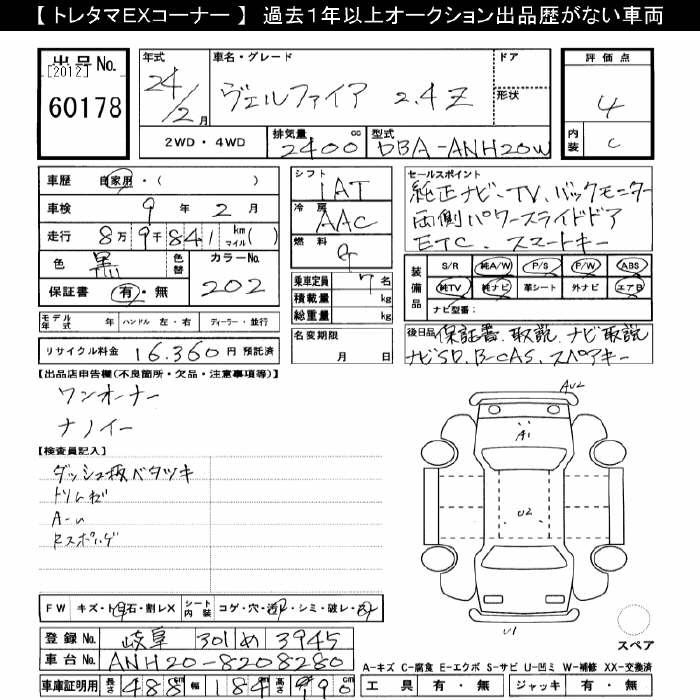 【 トレタマEXコーナー 】 過去1年以上オークション出品歴がない車両
出品No.
[2012]
60178
年式 車名・グレード ドア
24/2月 ヴェルファイア 2.4Z 形状
2WD・4WD 排気量 2400 cc 型式 DBA-ANH20W
評価点
4
内装 C
車歴 自家用・( )
車検 9年 2月
走行 8万9千841 km マイル( )
色 黒 色替 カラーNo. 202
保証書 有・無
シフト IAT
冷房 AAC
燃料 G
乗車定員 7名
積載量 kg
総重量 kg
名変期限 月 日
セールスポイント
純正ナビ、TV、バックモニター
両側パワースライドドア
ETC、スマートキー
装備品 S/R 純A/W P/S P/W ABS
純TV 純ナビ 革シート 外ナビ エアB
ナビ型番:
モデル年式 年 ハンドル 左・右 ディーラー・並行
リサイクル料金 16,360円 預託済
後日品 保証書、取説、ナビ取説
ナビSD、B-CAS、スペアキー
【出品店申告欄(不良箇所・欠品・注意事項等)】
ワンオーナー
ナノイー
【検査員記入】
ダッシュ板ベタツキ
A-U
AU2
A1
U2
U1
スペア
FW キズ・ト石・割レX シート内装 コゲ・穴・・シミ・破レ・
登録No. 岐阜 301 め 3945
車台No. ANH20-8208280
車庫証明用 長さ 488cm 幅 184cm 高さ 190cm
A-キズ C-腐食 E-エクボ S-サビ U-凹ミ W-補修 XX-交換済
工具 有・無 ジャッキ 有・無